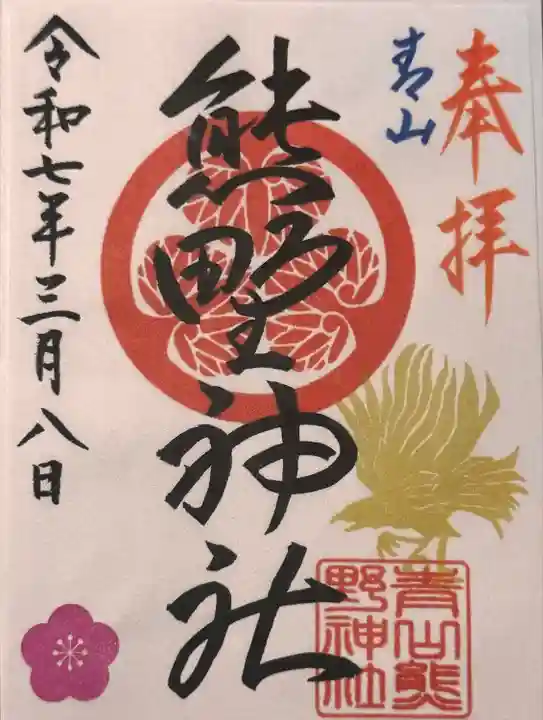 奉拝
青山
熊野神社
令和七年三月八日
青山熊
野神社